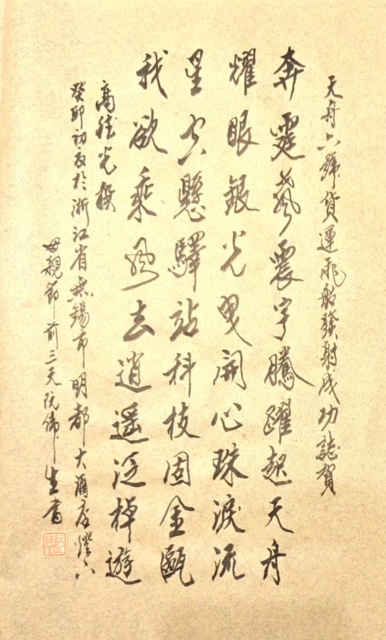 天舟六號貨運飛船發射成功誌賀
奔霆震宇騰躍起天舟
耀眼銀光曳開心珠淚流
星空懸驛站科技固金甌
我欲乘風去逍遥泛棹遊
高光撰
癸卯初夏於浙江省無錫市明都大酒店燈下
母親節前三天阮偉生書